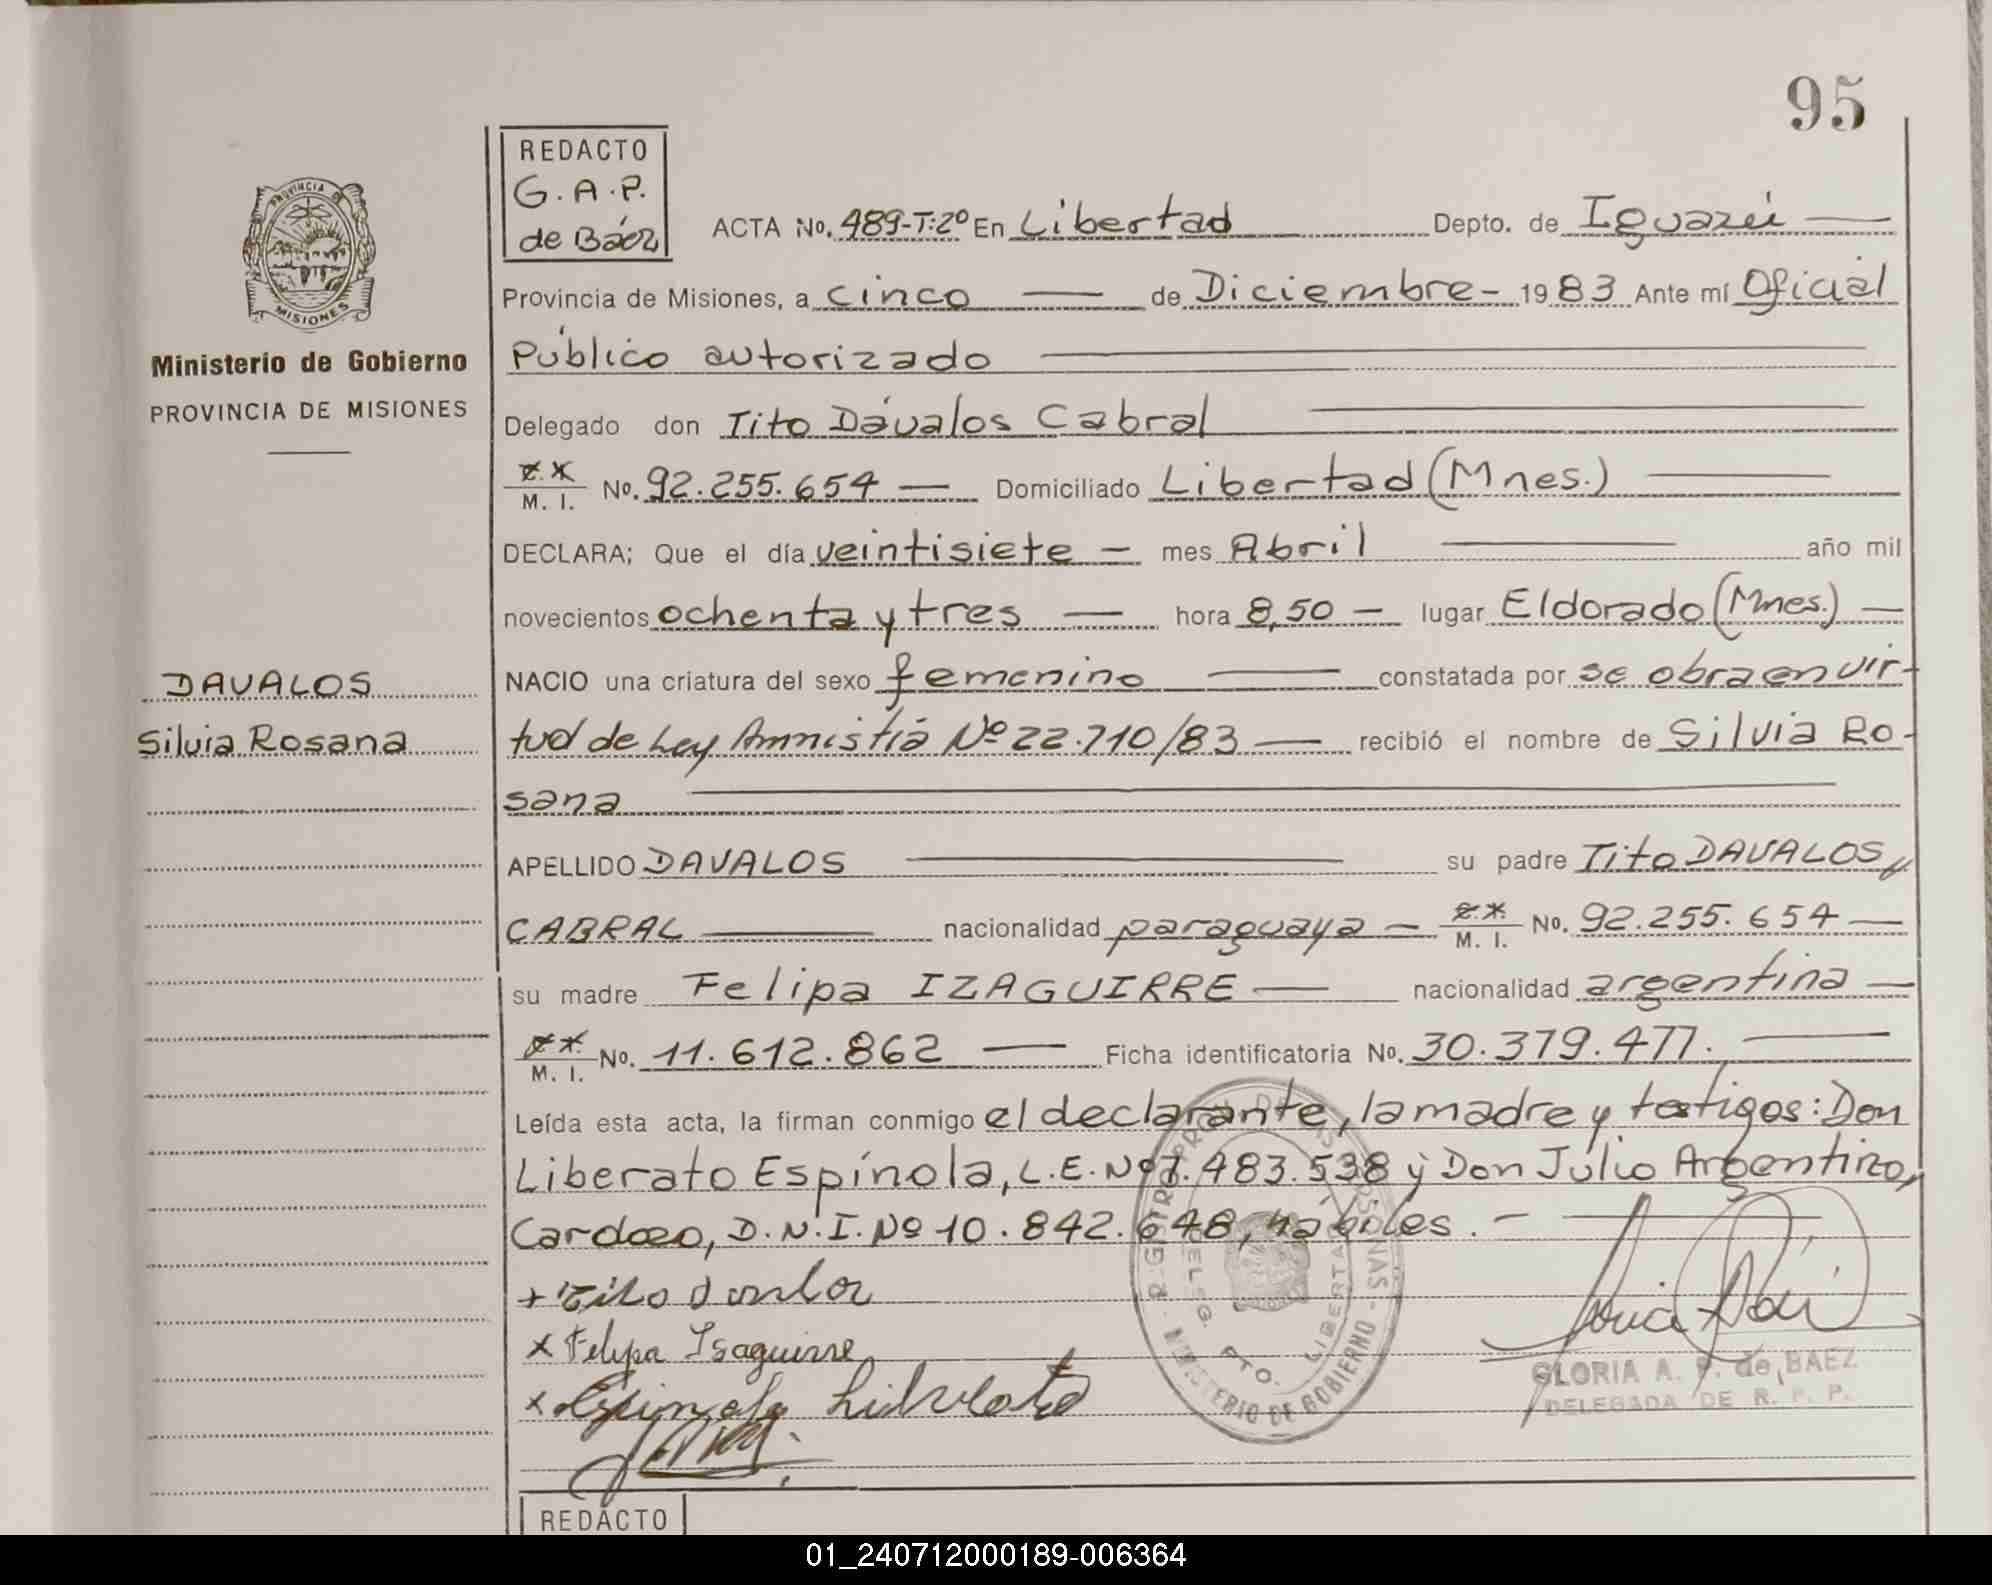 95
REDACTO
G.A.P.
de Báez
PROVINCIA DE
MISIONES
Ministerio de Gobierno
PROVINCIA DE MISIONES
DAVALOS
Silvia Rosana
ACTA No. 489-T:2º En Libertad Depto. de Iguazú
Provincia de Misiones, a cinco de Diciembre - 1983 Ante mí Oficial
Público autorizado
Delegado don Tito Dávalos Cabral
M. I. No. 92.255.654 Domiciliado Libertad (Mnes.)
DECLARA; Que el día veintisiete - mes Abril año mil
novecientos ochenta y tres hora 8,50 - lugar Eldorado (Mnes.)
NACIO una criatura del sexo femenino constatada por se obra en vir-
tud de Ley Amnistiá Nº 22.710/83 recibió el nombre de Silvia Ro-
sana
APELLIDO DAVALOS su padre Tito DAVALOS y
CABRAL nacionalidad paraguaya M. I. No. 92.255.654
su madre Felipa IZAGUIRRE nacionalidad argentina
M. I. No. 11.612.862 Ficha identificatoria No. 30.379.477.
Leída esta acta, la firman conmigo el declarante, la madre y testigos: Don
Liberato Espínola, L.E. Nº 7.483.538 y Don Julio Argentino,
Cardozo, D.N.I. Nº 10.842.648, hábiles. -
+ Tito
x Felipa Isaguirre
x Espinola Liberato
MINISTERIO DE GOBIERNO
DELEG. LIBERTAD
GLORIA A. P. de BAEZ
DELEGADA DE R. P. P.
REDACTO
01_240712000189-006364